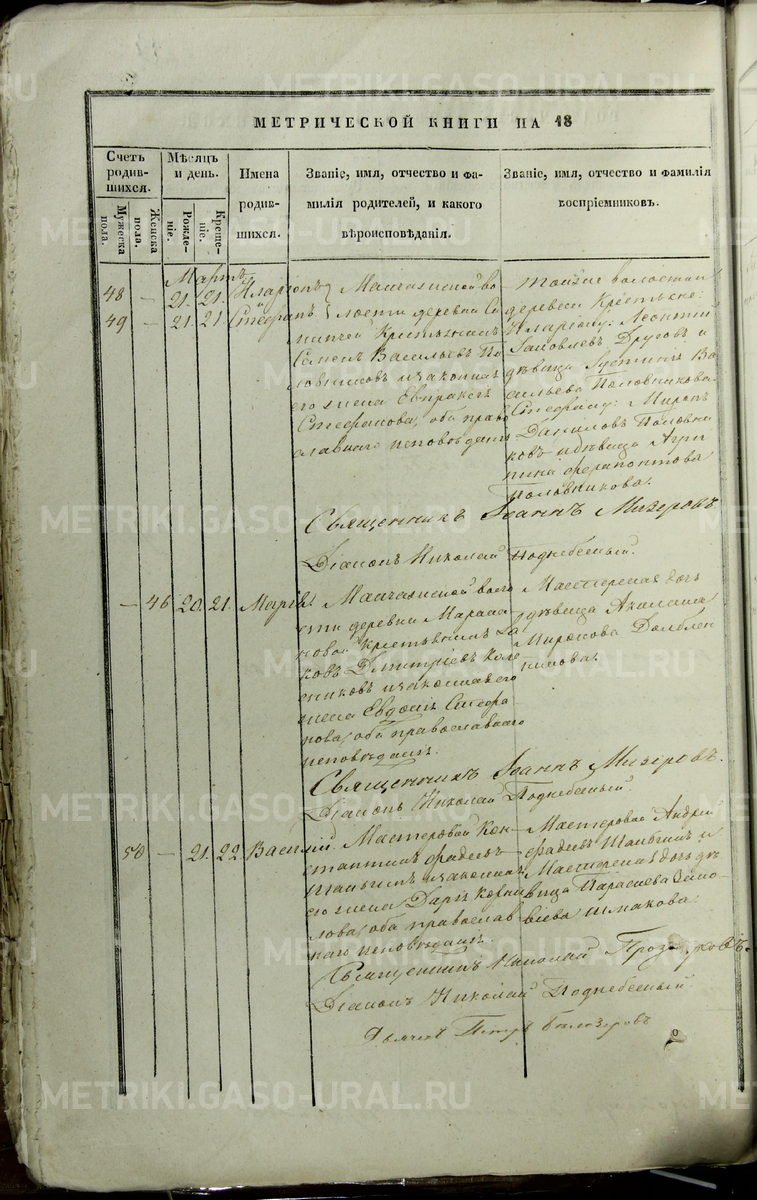 METRIKI.GASO-URAL.RU
МЕТРИЧЕСКОЙ КНИГИ НА 18
Счетъ родившихся.
Мужеска пола.
Женска пола.
Мѣсяцъ и день.
Рожденіе.
Крещеніе.
Имена родившихся.
Званіе, имя, отчество и фамилія родителей, и какого вѣроисповѣданія.
Званіе, имя, отчество и фамилія воспріемниковъ.
Мартъ
48 — 21. 21. Иларіонъ
и
49 — 21. 21. Стефанъ
волости деревни
Крестьянинъ
Семенъ Васильевъ
законная
его жена Евпраксія
Стефанова, оба право
славнаго исповѣданія
Тойже волости и
деревни Крестьяне:
Иларіону: Леонтій
Яковлевъ Друговъ и
дѣвица Ва
сильева Половникова.
Стефану: Миронъ
Даниловъ Половни
ковъ и дѣвица Агри
пина Ферапонтова
Половникова.
Священникъ Іоаннъ Мизеровъ.
Діаконъ Николай Поднебесный.
— 46 20. 21. Марія.
волос
ти деревни
Крестьянинъ Яковъ
Дмитріевъ
законная его
жена Евдокія Стефа
нова, оба православнаго
исповѣданія.
Мастерская дочь
дѣвица Акилина
Миронова
Священникъ Іоаннъ Мизеровъ.
Діаконъ Николай Поднебесный.
50 — 21. 22. Василій
Мастеровой Кон
стантинъ Фадеевъ
законная
его жена Дарія Корни
лова, оба православ
наго исповѣданія.
Мастеровой Андрей
Фадеевъ и
Мастерская дочь дѣ
вица Параскева
Шмакова.
Священникъ Николай
Діаконъ Николай Поднебесный
Дьячекъ Петръ Бѣлозеровъ